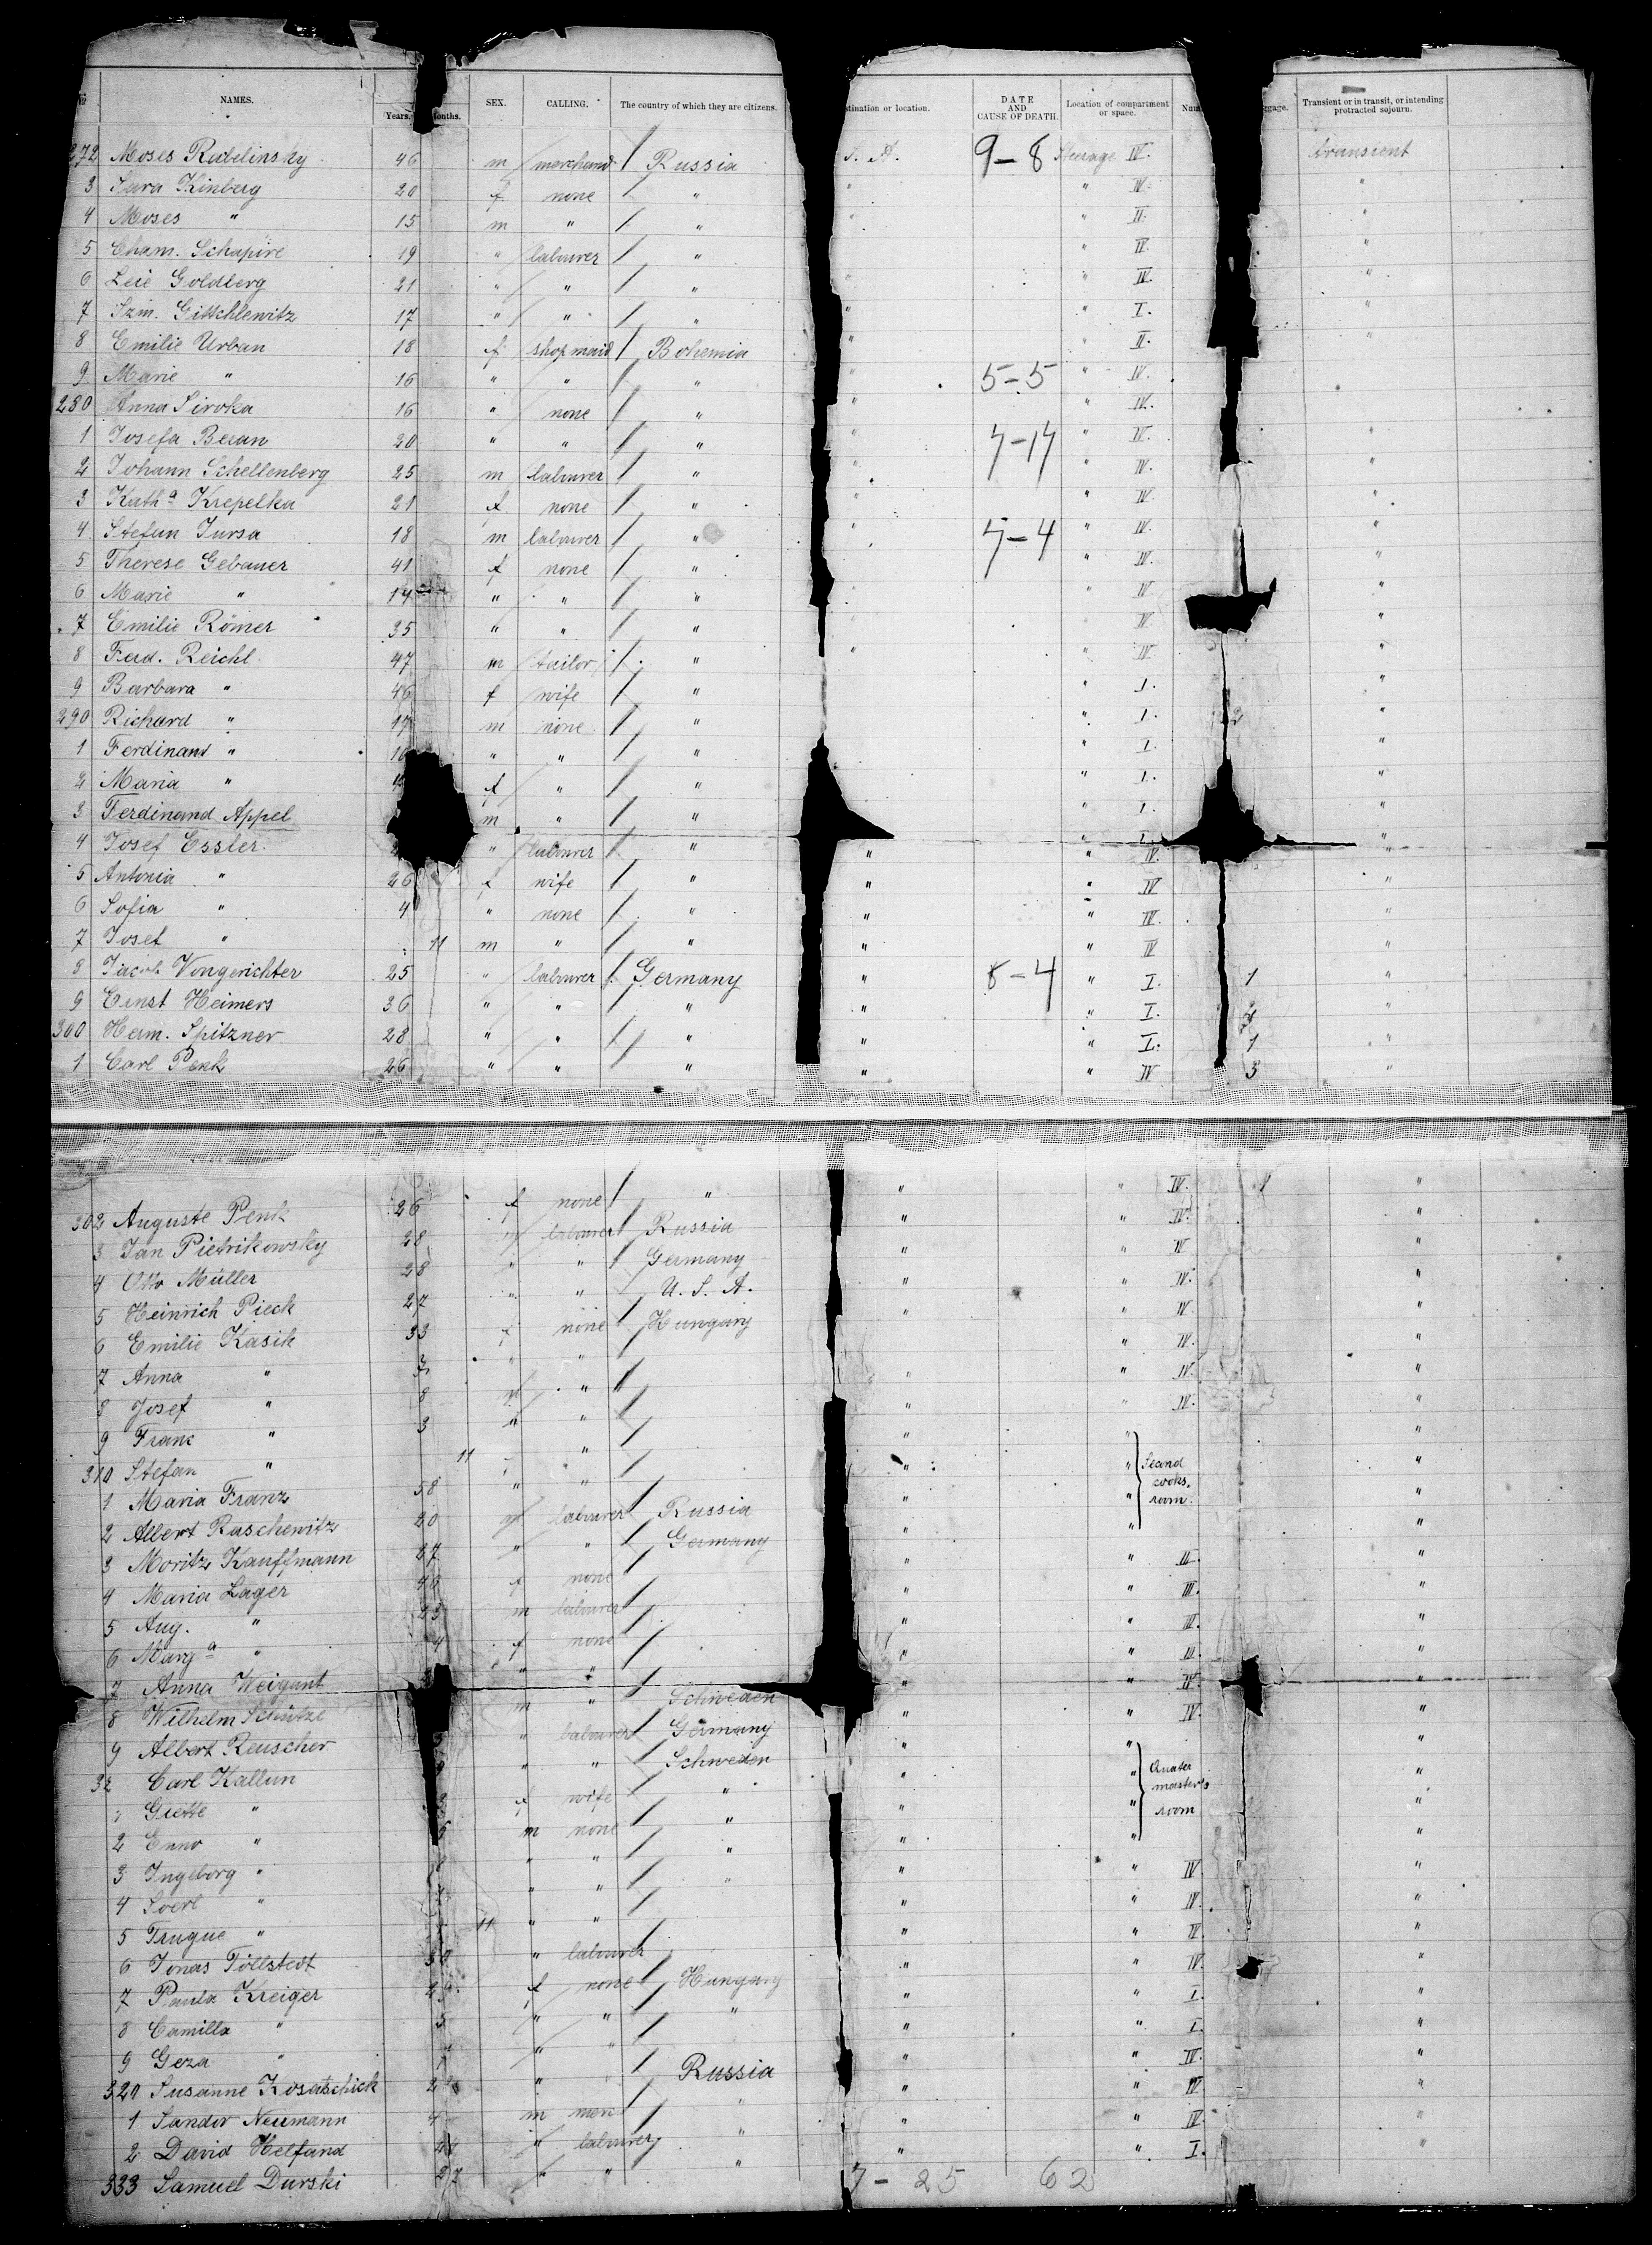 No NAMES. Years. Months. SEX. CALLING. The country of which they are citizens. stination or location. DATE AND CAUSE OF DEATH. Location of compartment or space. Num ggage. Transient or in transit, or intending protracted sojourn.
272 Moses Rubelinsky 46 m merchand Russia S. A. 9-8 Steerage IV. transient
3 Sara Kinberg 20 f none " " " IV. "
4 Moses " 15 m " " " " II. "
5 Cham. Schapire 19 " labourer " " " II. "
6 Leie Goldberg 21 " " " " " IV. "
7 Szm. Gittschlewitz 17 " " " " " I. "
8 Emilie Urban 18 f shop maid Bohemia " " II. "
9 Marie " 16 " " " " 5-5 " IV.
280 Anna Siroka 16 " none " " " IV. "
1 Josefa Beran 20 " " " " 7-17 " IV. "
2 Johann Schellenberg 25 m labourer " " " IV. "
3 Kath a Krepelka 21 f none " " " IV. "
4 Stefan Jursa 18 m labourer " " 7-4 " IV. "
5 Therese Gebauer 41 f none " " IV. "
6 Marie " 14 " " " " IV "
7 Emilie Römer 35 " " " IV "
8 Ferd. Reichl 47 m tailor " " " IV "
9 Barbara " 46 f wife " " I. "
290 Richard " 17 m none " " I. 2 "
1 Ferdinand " " " " " I. "
2 Maria " f " " " I. "
3 Ferdinand Appel m " " " I. "
4 Josef Essler. " labourer " " " IV. "
5 Antonia " 26 f wife " " " IV "
6 Sofia " 4 " none " " " IV. "
7 Josef " 11 m " " " " IV "
8 Jacob Vongerichter 25 " labourer Germany " 8-4 " I. 1 "
9 Ernst Heimers 36 " " " " " I. 2 "
300 Herm. Spitzner 28 " " " " " I. 1 "
1 Carl Penk 26 " " " " " IV 3 "
302 Auguste Penk 26 f none " " " IV. 1 "
3 Jan Pietrikowsky 28 m labourer Russia " " IV. "
4 Otto Müller 28 " " Germany " " IV "
5 Heinrich Pieck 27 " " U. S. A. " " IV. "
6 Emilie Kasik 33 f none Hungary " " IV. "
7 Anna " " " " IV. "
8 Josef " 8 m " " " IV. "
9 Franz " 3 " " " " IV. "
310 Stefan " 11 " " " " "
1 Maria Franz 58 " " " " Second cooks. room. "
2 Albert Raschewitz 20 m labourer Russia " " "
3 Moritz Kauffmann 27 " " Germany " " "
4 Maria Lager f none " " II. "
5 Aug. " 23 m labourer " " III. "
6 Marg a " 4 f none " " III. "
7 Anna Weigant " " " " III. "
8 Wilhelm Schütze m " Schweden " " IV. "
9 Albert Reuscher " labourer Germany " " IV. "
32 Carl Kallun " " Schweden " " "
Giette " f wife " " " Quater master's room "
2 Enno " m none " " " "
3 Ingeborg " " " " " " "
4 Soerl " " " " " " IV. "
5 Trugue " 11 " " " " IV. "
6 Jonas Töllstedt 30 " labourer " " IV. "
7 Paula Kreiger f none Hungary " " IV. "
8 Camilla " " " " " " I. "
9 Geza " " " " " I. "
320 Susanne Kosatschick " Russia " " IV. "
1 Sandor Neumann m none " " " IV. "
2 David Helfand " labourer " " " IV. "
333 Samuel Durski 27 " " " " " I. "
7- 25 62